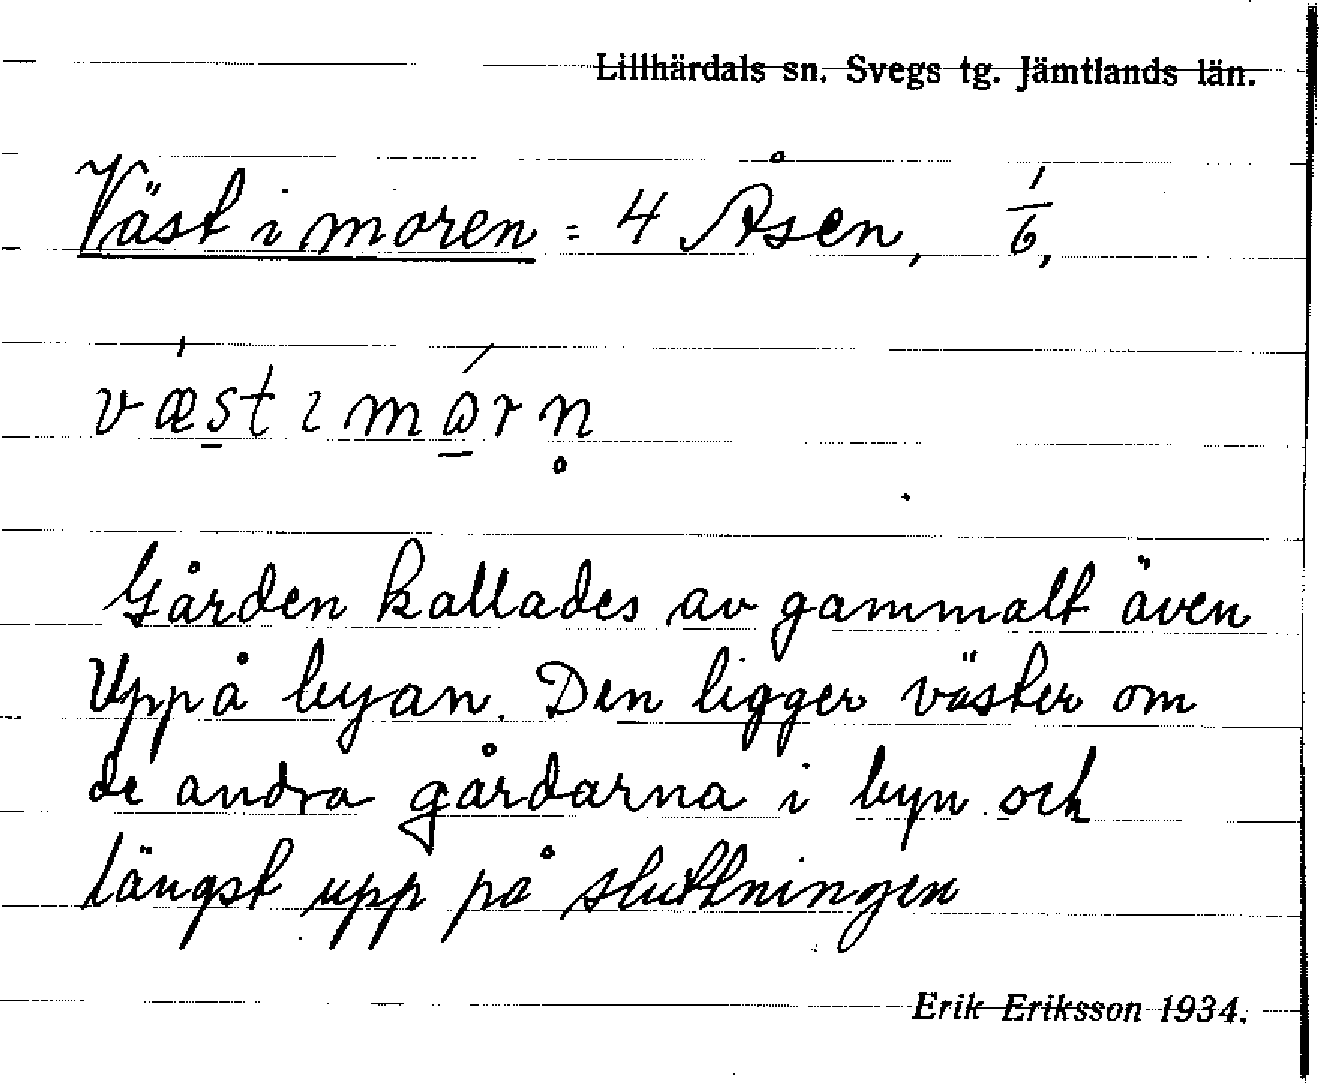 Lillhärdals sn. Svegs tg. Jämtlands län.
Väst i moren = 4 Åsen, 1/6,
væ̍st ɩ mώrn̥
Gården kallades av gammalt även
Uppå byan. Den ligger väster om
de andra gårdarna i byn och
längst upp på sluttningen
Erik Eriksson 1934.